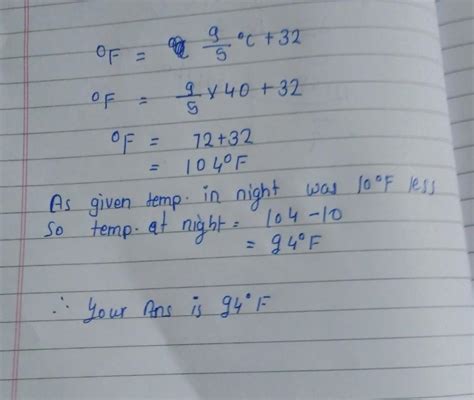 °F = 9/5 °C + 32
°F = 9/5 × 40 + 32
°F = 72+32
= 104°F
As given temp. in night was 10°F less
So temp. at night = 104 - 10
= 94°F
∴ Your Ans is 94°F